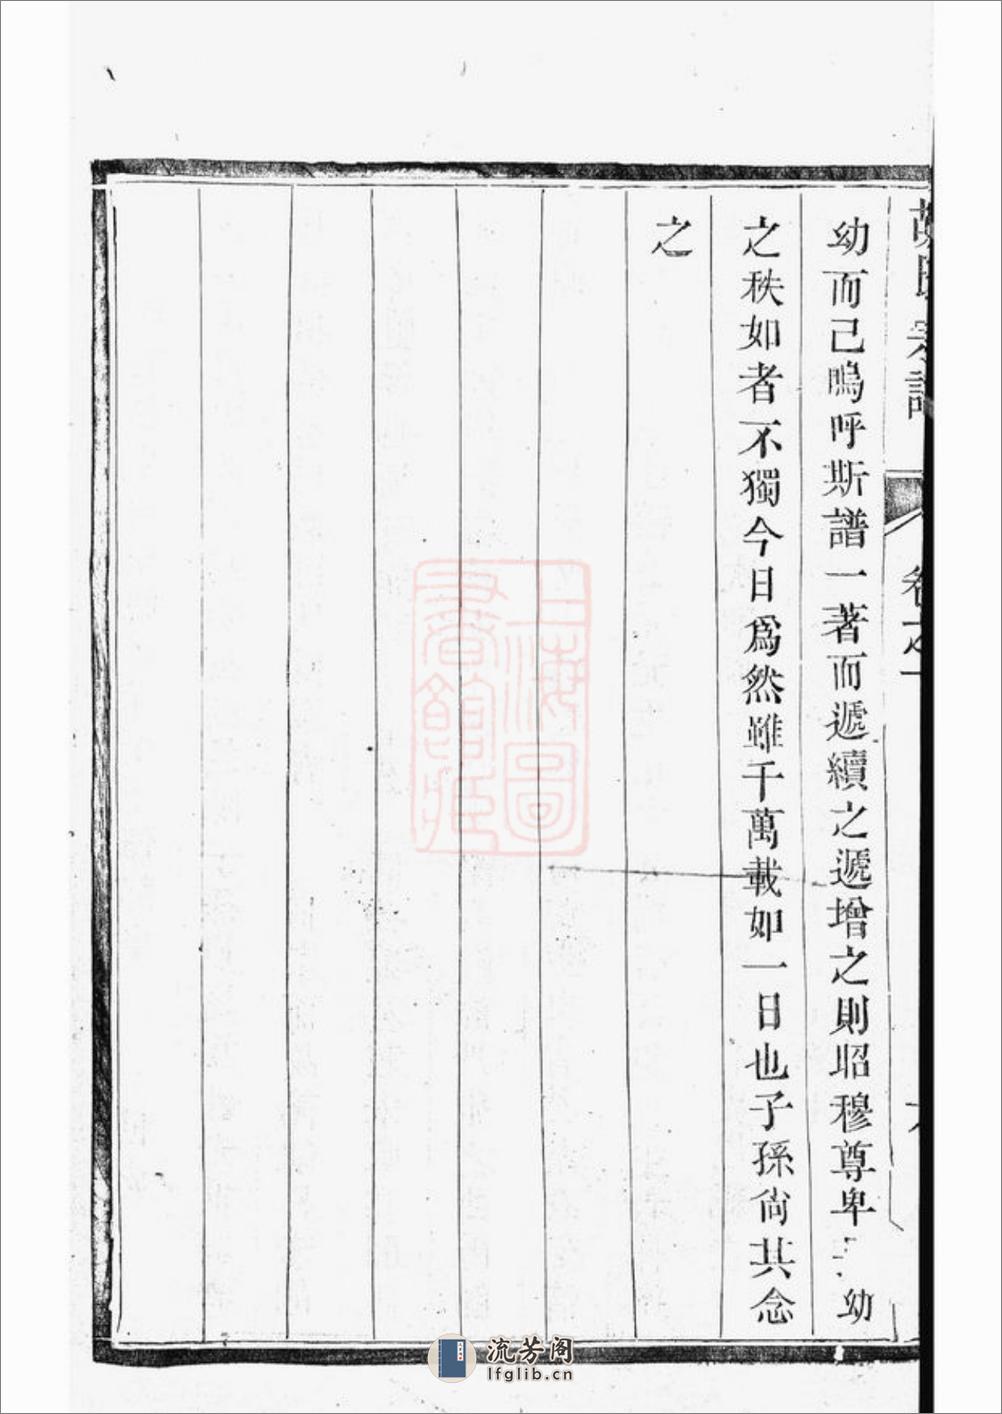 幼而己嗚呼斯譜一著而遞續之遞增之則昭穆尊卑幼
之秩如者不獨今日爲然雖千萬載如一日也子孫尙其念
之
卷之一
上海圖
書館藏
流芳阁
lfglib.cn